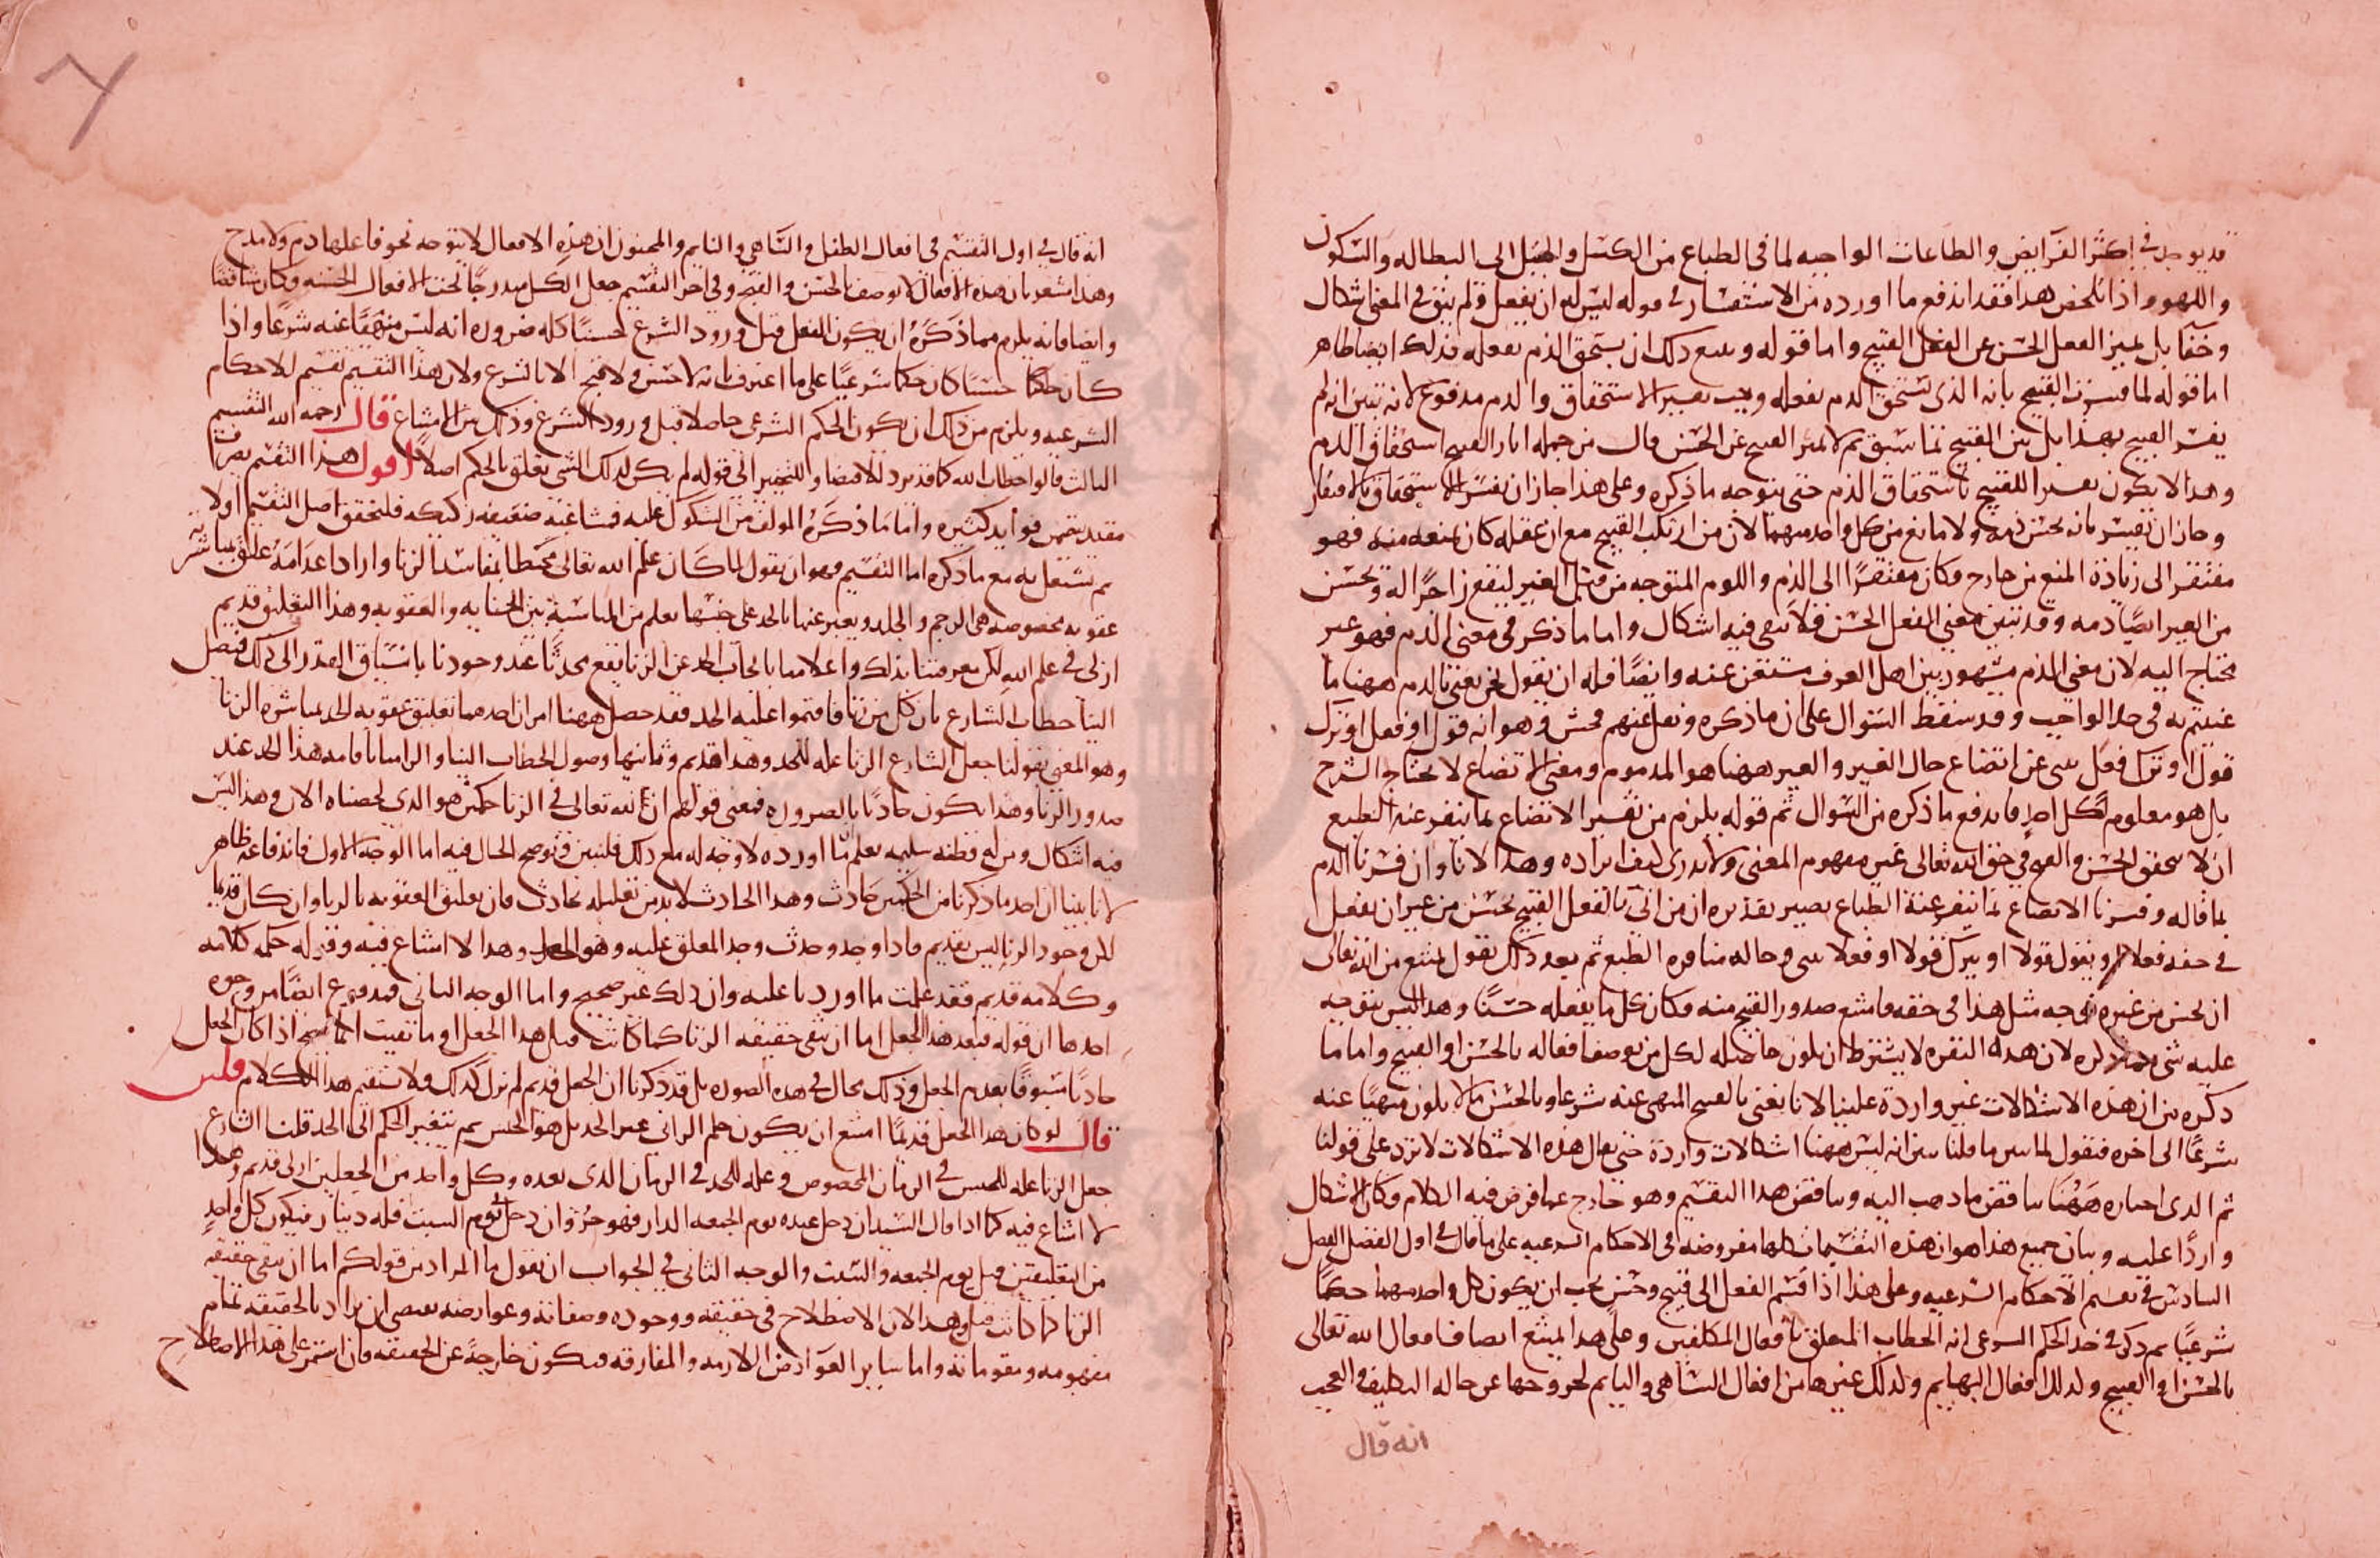 قد يوجد في اكثر الفرايض والطاعات الواجبه لما في الطباع من الكسل والميل الى البطاله والسكون
واللهو واذا تلخص هذا فقد اندفع ما اورده من الاستفسار في قوله ليس له ان يفعل ولم يبق في المعنى اشكال
وخفا بل تميز الفعل الحسن عن الفعل القبيح واما قوله وسع ذلك ان يستحق الذم بفعله فذلك ايضا ظاهر
اما قوله لما فسرت القبيح بانه الذي يستحق الذم بفعله وجب تفسير الاستحقاق والذم مدفوع لانه تبين انه لم
يفسر القبيح بهذا بل بين القبيح بما سبق ثم لا تميز القبيح عن الحسن قال من جمله اثار القبيح استحقاق الذم
وهذا لا يكون تفسيرا للقبيح باستحقاق الذم حتى يتوجه ما ذكره وعلى هذا جاز ان يفسر الاستحقاق بالافتقار
وجاز ان يفسر بانه يحسن ذمه ولا مانع من كل واحد منهما لان من ارتكب القبيح مع ان عقله كان يمنعه منه فهو
مفتقر الى زيادة المنع من خارج وكان مفتقرا الى الذم واللوم المتوجه من قبل الغير ليقع زاجرا له ويحسن
من الغير ايضا ذمه وقد تبين معنى الفعل الحسن فلا يبقى فيه اشكال واما ما ذكر في معنى الذم فهو غير
محتاج اليه لان معنى الذم مشهور بين اهل العرف مستغن عنه وايضا فله ان يقول نحن نعني بالذم ههنا ما
عنيتم به في حد الواجب وقد سقط السوال على ان ما ذكره ونقل عنهم فحش وهو انه قول او فعل او ترك
قول او ترك فعل ينبي عن اتضاع حال الغير والغير ههنا هو المذموم ومعنى الاتضاع لا يحتاج الشرح
بل هو معلوم لكل احد فاندفع ما ذكره من السوال ثم قوله يلزم من تفسير الاتضاع بما ينفر عنه الطبع
ان لا يتحقق الحسن والقبح في حق الله تعالى غير مفهوم المعنى ولا ندري كيف ايراده وهذا لانا وان فسرنا الذم
بما قاله وفسرنا الاتضاع بما ينفر عنه الطباع يصير تقديره ان من اتى بالفعل القبيح يحسن من غيره ان يفعل
في حقه فعلا او يقول قولا او يترك قولا او فعلا ينبي عن حاله منافره الطبع ثم بعد ذلك نقول يمتنع من الله تعالى
ان يحسن من غيره توجه مثل هذا في حقه فامتنع صدور القبيح منه وكان كل ما يفعله حسنا وهذا ليس يتوجه
عليه شي لان هذه النفره لا يشترط ان يكون حاصله لكل من يوصف افعاله بالحسن او القبيح واما ما
ذكره من ان هذه الاشكالات غير واردة علينا لانا نعني بالقبيح المنهي عنه شرعا وبالحسن ما لا يكون منهيا عنه
شرعا الى اخره فنقول لما تبين ما قلنا تبين انه ليس ههنا اشكالات واردة حتى يقال هذه الاشكالات لا ترد على قولنا
ثم الذي اختاره ههنا يناقض ما ذهب اليه ويناقض هذا التقسيم وهو خارج عما فرض فيه الكلام وكان الاشكال
واردا عليه وبيان جميع هذا هو ان هذه التقسيمات كلها مفروضه في الاحكام الشرعيه على ما قال في اول الفصل الفصل
السادس في تقسيم الاحكام الشرعيه وعلى هذا اذا قسم الفعل الى قبيح وحسن يجب ان يكون كل واحد منهما حكما
شرعيا ثم ذكر في حد الحكم الشرعي انه الخطاب المتعلق بافعال المكلفين وعلى هذا يمتنع اتصاف افعال الله تعالى
بالحسن او القبيح وكذلك افعال البهايم وكذلك غيرها من افعال الساهي والنايم لخروجها عن حاله التكليف والعجب
انه قال
انه قال في اول التقسيم في افعال الطفل والساهي والنايم والمجنون ان هذه الافعال لا يتوجه نحو فاعلها ذم ولا مدح
وهذا مشعر بان هذه الافعال لا توصف بالحسن والقبح وفي اخر التقسيم جعل الكل مندرجا تحت الافعال الحسنه وكان تناقضا
وايضا فانه يلزم مما ذكره ان يكون الفعل قبل ورود الشرع حسنا كله ضروره انه ليس منهيا عنه شرعا واذا
كان حسنا كان حكما شرعيا على ما اعترف بانه لا حسن ولا قبح الا بالشرع ولان هذا التقسيم تقسيم للاحكام
الشرعيه ويلزم من ذلك ان يكون الحكم الشرعي حاصلا قبل ورود الشرع وذلك من الامتناع قال رحمه الله التقسيم
الثالث قالوا خطاب الله كما قد يرد بالاقتضا والتخيير الى قوله لم يكن لذلك الشي تعلق بالحكم اصلا اقول هذا التقسيم
فوايد كثيره واما ما ذكره المولف من الشكوك عليه فمشاغبه ضعيفه ركيكه فلنحقق اصل التقسيم اولا
ثم نشتغل به مع ما ذكره اما التقسيم فهو ان يقول لما كان علم الله تعالى محيطا بمفاسد الزنا واراد اعدامه علق بمباشرته
عقوبه مخصوصه هي الرجم والجلد ويعبر عنها بالحد على حسب ما يعلم من المناسبة بين الجنايه والعقوبه وهذا التعليق قديم
ازلي في علم الله لكن معرفتنا بذلك واعلامنا بايجاب الحد عن الزنا يقع محدثا عند وجودنا بانسياق القدر الى ذلك فيصل
الينا خطاب الشارع بان كل من زنا فاقيموا عليه الحد فقد حصل ههنا امران احدهما تعليق عقوبه الحد بمباشره الزنا
وهو المعنى بقولنا جعل الشارع الزنا عله للحد وهذا قديم وثانيهما وصول الخطاب الينا والزامنا باقامه هذا الحد عند
صدور الزنا وهذا يكون حادثا بالضروره فمعنى قولهم ان لله تعالى في الزنا حكمين هو الذي لخصناه الان وهذا ليس
فيه اشكال ومن له فطنه سليمه يعلم ان ما اورده لا وجه له مع ذلك فلنبين ونوضح الحال فيه اما الوجه الاول فاندفاعه ظاهر
لانا بينا ان احد ما ذكرنا من الحكمين حادث وهذا الحادث لا بد من تعليله بحادث فان تعليق العقوبه بالزنا وان كان قديما
لكن وجود الزنا ليس بقديم فاذا وجد وحدث وجد المعلق عليه وهو الحد وهذا لا امتناع فيه وقوله حكمه كلامه
وكلامه قديم فقد علمت ما اوردنا عليه وان ذلك غير صحيح واما الوجه الثاني فمدفوع ايضا من وجوه
احدها ان قوله فبعد هذا الجعل اما ان تبقى حقيقه الزنا كما كانت قبل هذا الجعل او ما بقيت انما يصح اذا كان الجعل
حادثا مسبوقا بعدم الجعل وذلك محال في هذه الصوره بل قد ذكرنا ان الجعل قديم لم يزل كذلك ولا يستقيم هذا الكلام فلين
قال لو كان هذا الجعل قديما امتنع ان يكون حكم الزاني غير الحد بل هو الحبس ثم يتغير الحكم الى الحد قلنا الشارع
جعل الزنا عله للحبس في الزمان المخصوص وعله للحد في الزمان الذي بعده وكل واحد من الجعلين ازلي قديم وهذا
لا امتناع فيه كما اذا قال السيد ان دخل عبده يوم الجمعه الدار فهو حر وان دخل يوم السبت فله دينار فيكون كل واحد
من التعليقين قبل يوم الجمعه والسبت والوجه الثاني في الجواب ان نقول ما المراد من قولكم اما ان تبقى حقيقه
الزنا كما كانت قبل وهذا لان الاصطلاح في حقيقه ووجوده وصفاته وعوارضه يقتضي ان يراد بالحقيقه تمام
مفهومه ومقوماته واما ساير العوارض اللازمه والمفارقه فيكون خارجة عن الحقيقه فان استمر على هذا الاصطلاح